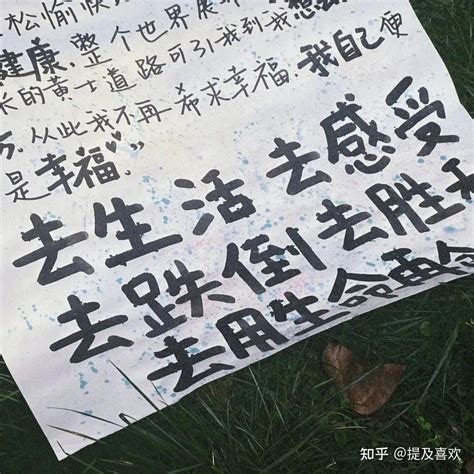 松愉快
健康,整个世界展
长的黄土道路可引我到我想
方.从此我不再希求幸福,我自己便
是幸福。”
去生活 去感受
去跌倒 去胜
去用生命再
知乎 @提及喜欢